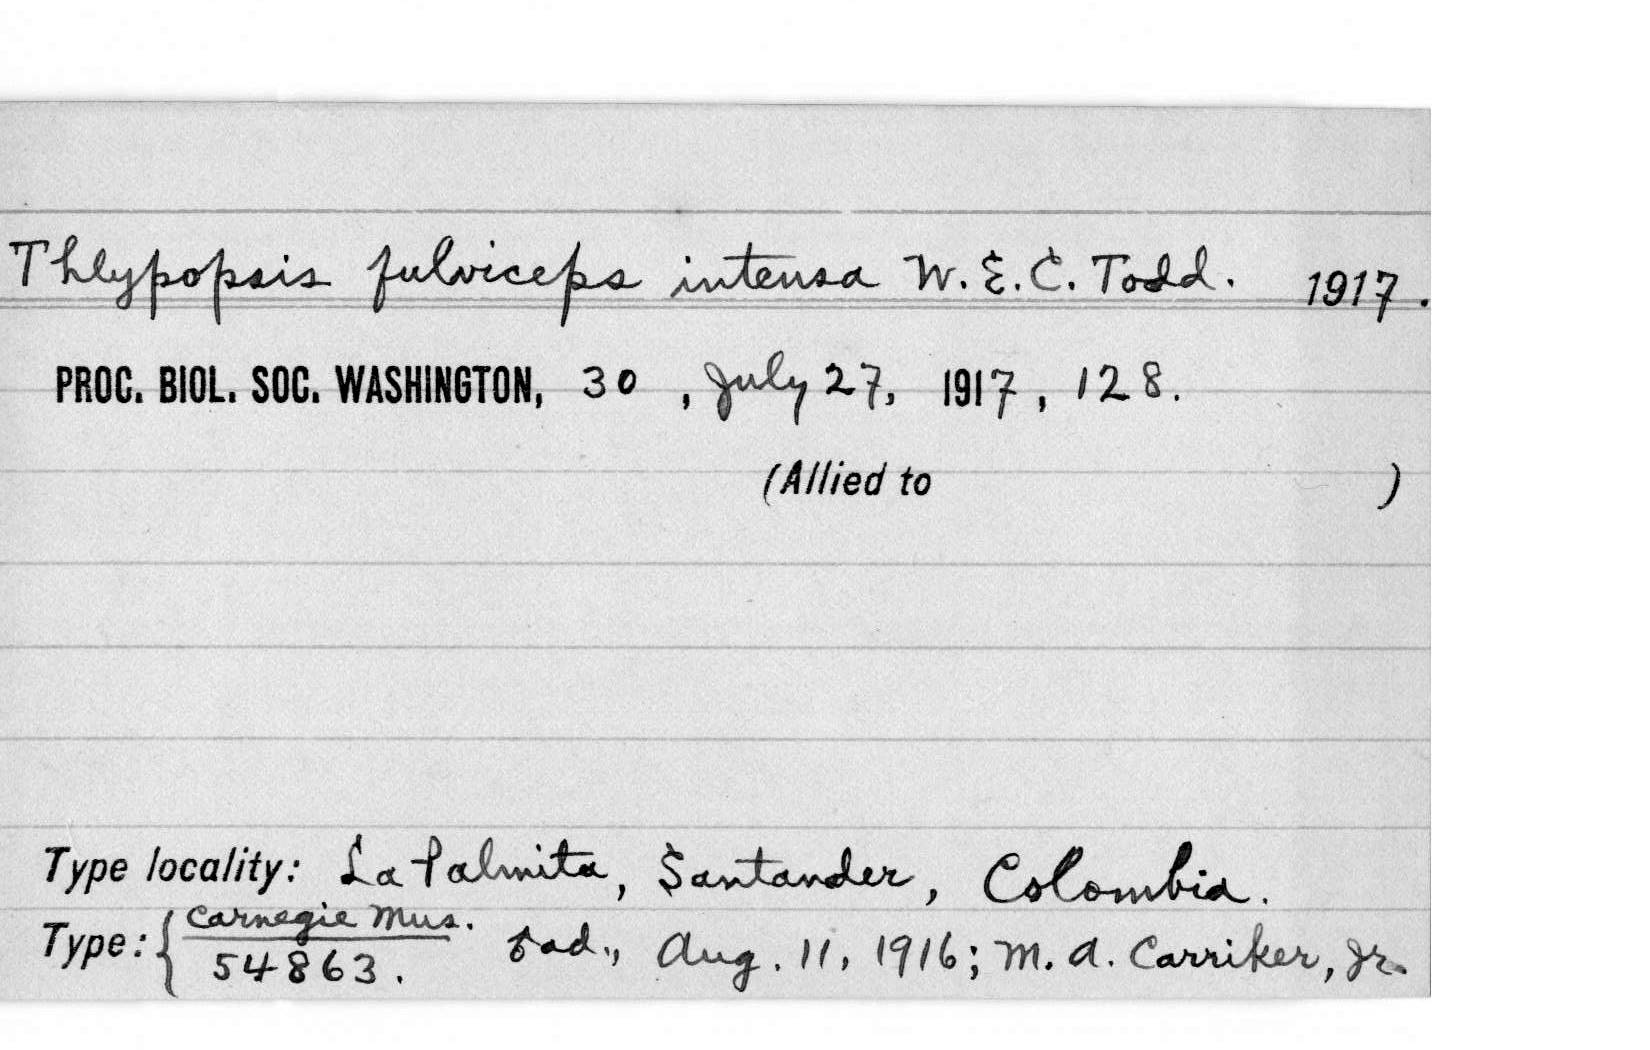 Thlypopsis fulviceps intensa W. E. C. Todd. 1917.
PROC. BIOL. SOC. WASHINGTON, 30, July 27, 1917, 128.
(Allied to )
Type locality: La Palmita, Santander, Colombia.
Type: { Carnegie Mus.
54863. ad., Aug. 11, 1916; M. A. Carriker, Jr.